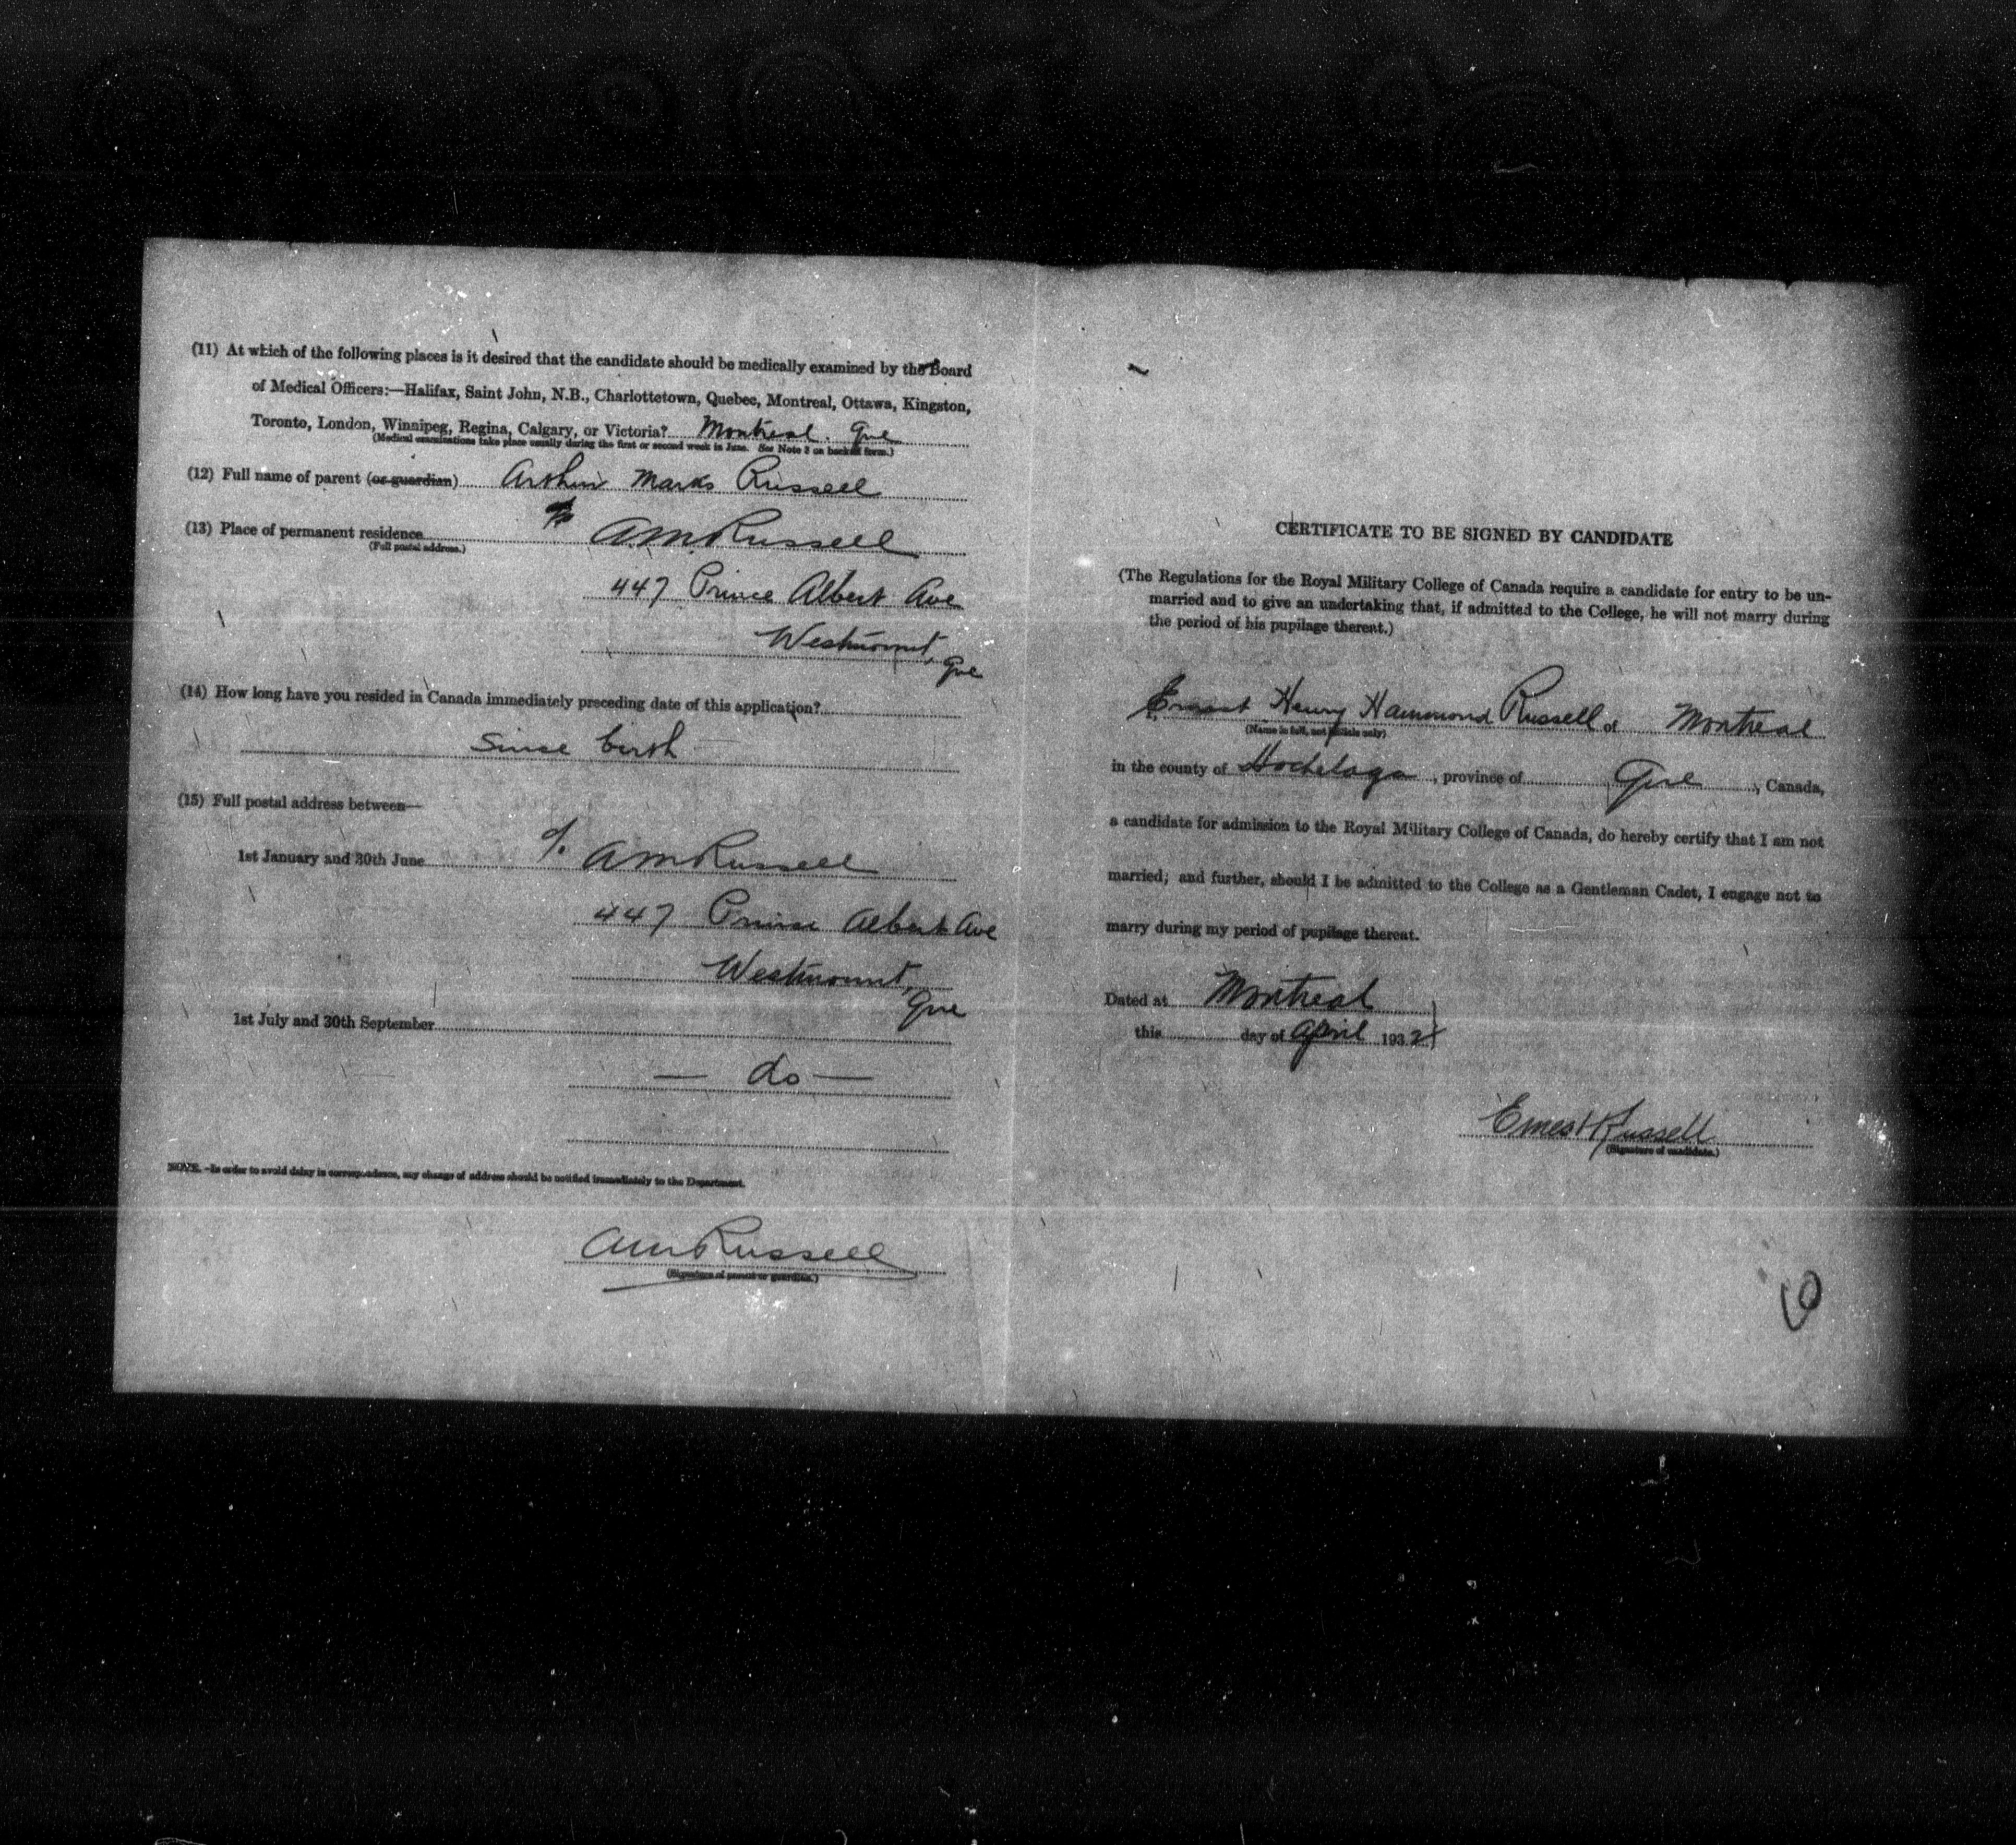 (11) At which of the following places is it desired that the candidate should be medically examined by the Board
of Medical Officers:—Halifax, Saint John, N.B., Charlottetown, Quebec, Montreal, Ottawa, Kingston,
Toronto, London, Winnipeg, Regina, Calgary, or Victoria? Montreal. Que
(Medical examinations take place usually during the first or second week in June. See Note 3 on back of form.)
(12) Full name of parent (or guardian) Arthur Marks Russell
(13) Place of permanent residence % AM Russell
(Full postal address.)
447 Prince Albert Ave
Westmount, Que
(14) How long have you resided in Canada immediately preceding date of this application?
Since birth
(15) Full postal address between—
1st January and 30th June % AM Russell
447 Prince Albert Ave
Westmount,
Que
1st July and 30th September
— do —
NOTE.—In order to avoid delay in correspondence, any change of address should be notified immediately to the Department.
AM Russell
(Signature of parent or guardian.)
CERTIFICATE TO BE SIGNED BY CANDIDATE
(The Regulations for the Royal Military College of Canada require a candidate for entry to be un-
married and to give an undertaking that, if admitted to the College, he will not marry during
the period of his pupilage thereat.)
Ernest Henry Hammond Russell of Montreal
(Name in full, not initials only)
in the county of Hochelaga, province of Que, Canada,
a candidate for admission to the Royal Military College of Canada, do hereby certify that I am not
married; and further, should I be admitted to the College as a Gentleman Cadet, I engage not to
marry during my period of pupilage thereat.
Dated at Montreal
this day of April 1932
Ernest Russell
(Signature of candidate.)